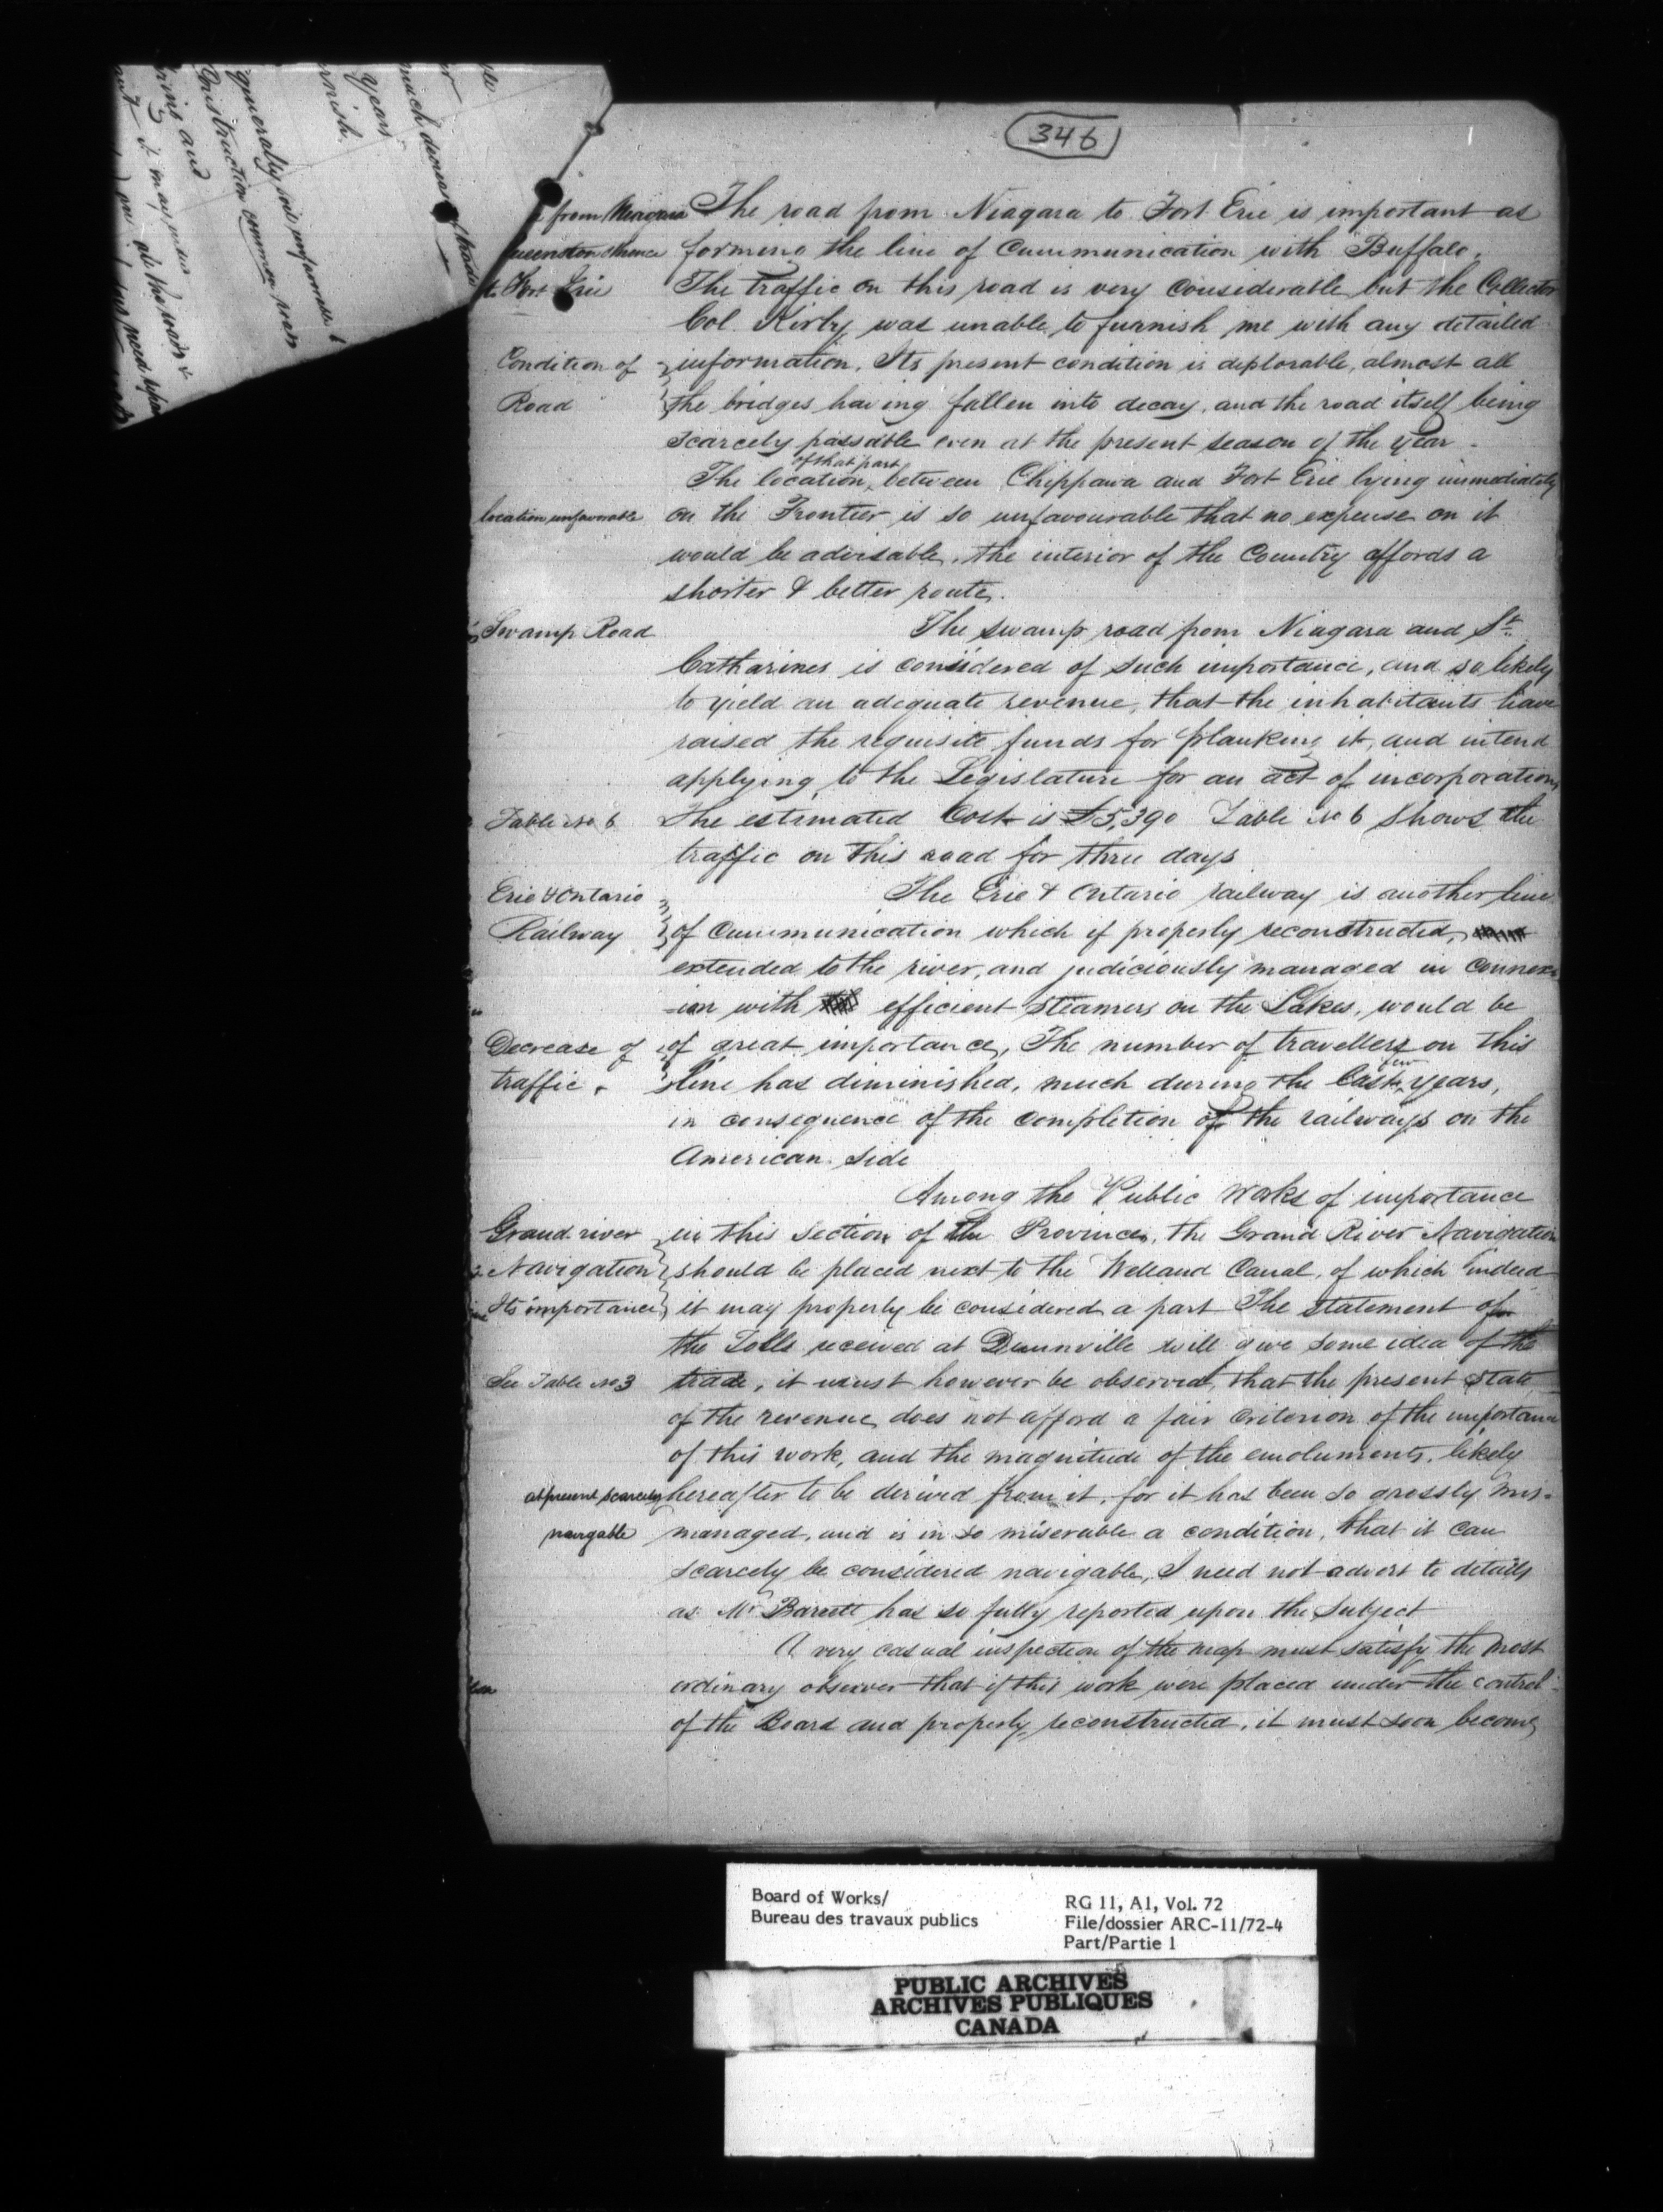 346
from Niagara The road from Niagara to Fort Erie is important as
Queenston thence forming the line of Communication with Buffalo.
to Fort Erie The traffic on this road is very Considerable but the Collector
Col. Kirby was unable to furnish me with any detailed
Condition of information. Its present condition is deplorable, almost all
Road the bridges having fallen into decay, and the road itself being
scarcely passable even at the present season of the year.
of that part
The location between Chippawa and Fort Erie lying immediately
location unfavorable on the Frontier is so unfavourable that no expense on it
would be advisable, the interior of the Country affords a
shorter & better route.
Swamp Road The swamp road from Niagara and St.
Catharines is considered of such importance, and so likely
to yield an adequate revenue, that the inhabitants have
raised the requisite funds for planking it, and intend
applying to the Legislature for an act of incorporation,
Table No 6 The estimated Cost is £5,390 Table No 6 shows the
traffic on this road for three days
Erie & Ontario The Erie & Ontario railway is another line
Railway of Communication which if properly reconstructed,
extended to the river, and judiciously managed in connex-
-ion with efficient steamers on the Lakes, would be
Decrease of of great importance, The number of travellers on this
few
traffic. line has diminished, much during the last years,
in consequence of the completion of the railways on the
American side
Among the Public Works of importance
Grand river in this section of the Province, the Grand River Navigation
Navigation should be placed next to the Welland Canal, of which indeed
Its importance it may properly be considered a part The statement of
the Tolls received at Dunnville will give some idea of the
See Table No 3 trade, it must however be observed, that the present state
of the revenue does not afford a fair criterion of the importance
of this work, and the magnitude of the emoluments, likely
at present scarcely hereafter to be derived from it, for it has been so grossly mis-
navigable managed, and is in so miserable a condition, that it can
scarcely be considered navigable, I need not advert to details
as Mr Barrett has so fully reported upon the subject
A very casual inspection of the map must satisfy the most
ordinary observer that if this work were placed under the control
of the Board and properly reconstructed, it must soon become
much decrease
years
generally
Construction common roads
and
it may
all the roads &
Board of Works/
Bureau des travaux publics
RG 11, A1, Vol. 72
File/dossier ARC-11/72-4
Part/Partie 1
PUBLIC ARCHIVES
ARCHIVES PUBLIQUES
CANADA